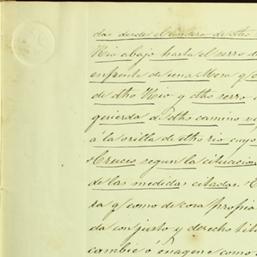 da desde el lindero de dho
Rio abajo hasta el serro d
enfrente de una Mora q̃ e
de dho Reio y dho serro
quierda d dho camino va
á la orilla de dho rio cuyo
Cruces segun la cituacion
de las medidas citadas. E
da q̃ como de cosa propia
da con justo y derecho titu
cambie o enagene como